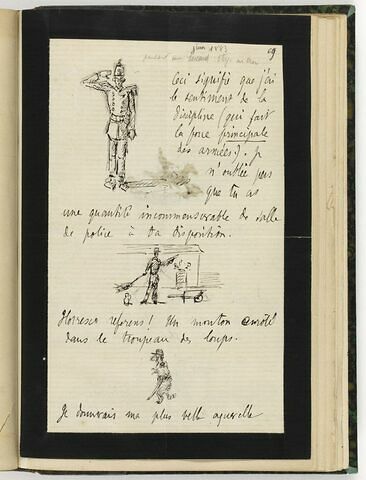 juin 1883
69
Ceci signifie que j'ai
le sentiment de la
discipline (qui fait
la force principale
des armées). Je
n'oublie pas
que tu as
une quantité incommensurable de salle
de police à ta disposition.
Horresco referens! Un mouton enrôlé
dans le troupeau des loups.
Je donnerais ma plus belle aquarelle